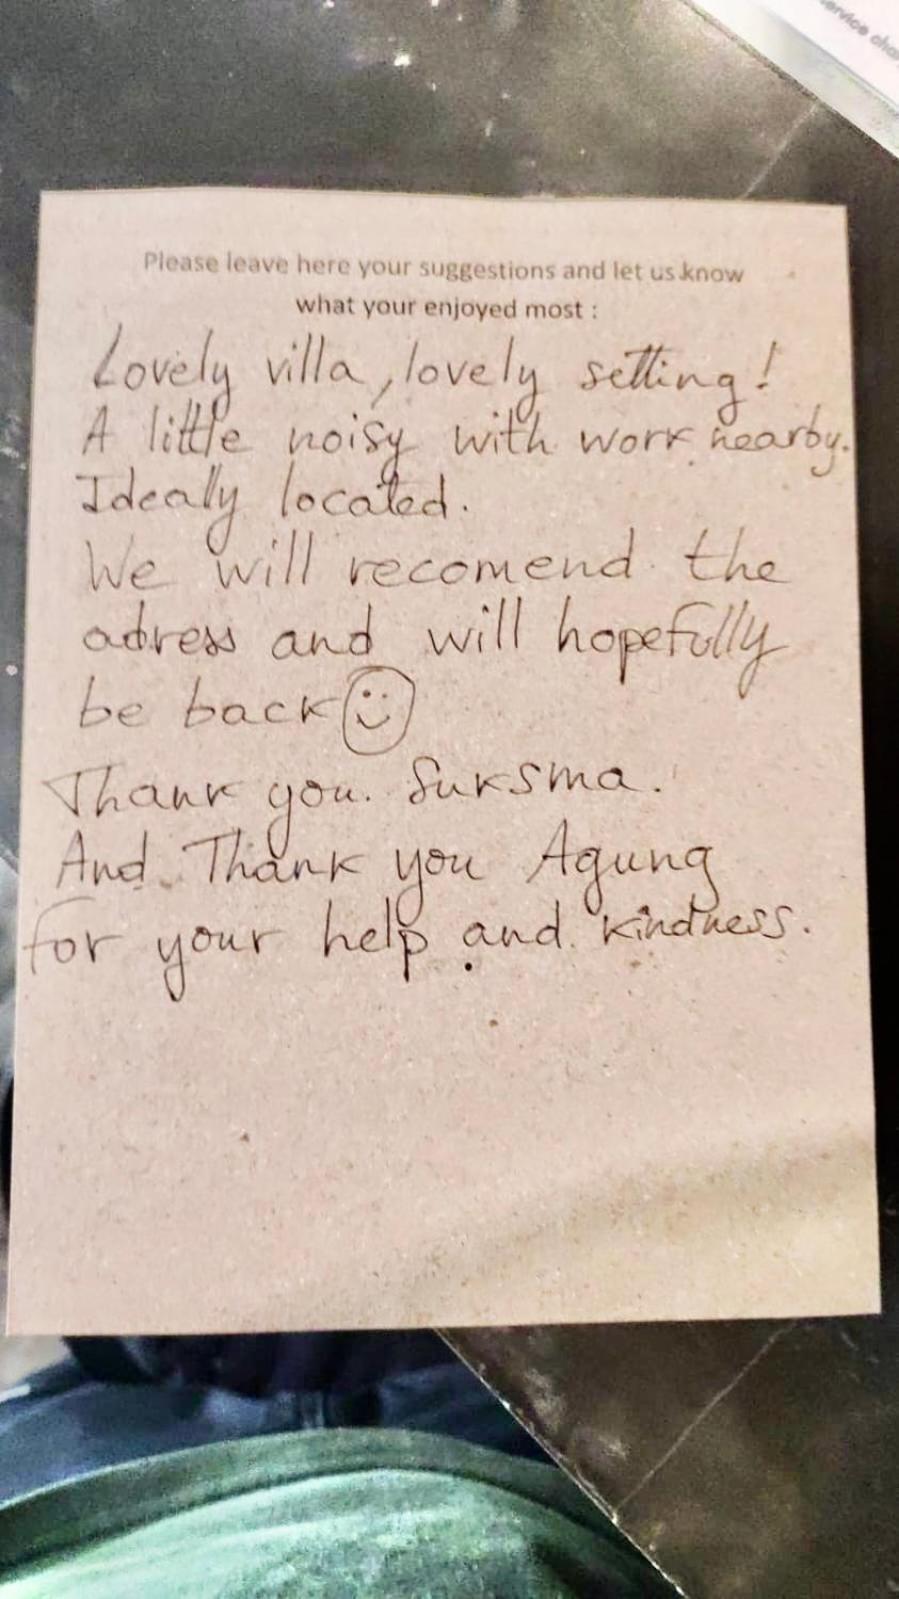 service cha
Please leave here your suggestions and let us know
what your enjoyed most :
Lovely villa, lovely setting!
A little noisy with work nearby.
Ideally located.
We will recomend the
adress and will hopefully
be back
Thank you. Suksma.
And Thank you Agung
for your help and kindness.